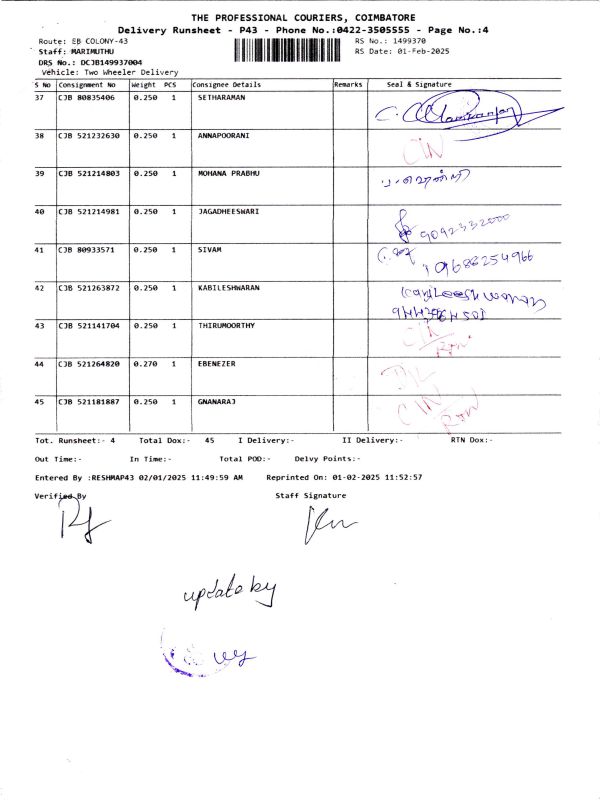 THE PROFESSIONAL COURIERS, COIMBATORE
Delivery Runsheet - P43 - Phone No.:0422-3505555 - Page No.:4
Route: EB COLONY-43 RS No.: 1499370
Staff: MARIMUTHU RS Date: 01-Feb-2025
DRS No.: DCJB149937004
Vehicle: Two Wheeler Delivery
S No Consignment No Weight PCS Consignee Details Remarks Seal & Signature
37 CJB 80835406 0.250 1 SETHARAMAN
38 CJB 521232630 0.250 1 ANNAPOORANI CIN
39 CJB 521214803 0.250 1 MOHANA PRABHU
40 CJB 521214981 0.250 1 JAGADHEESWARI 9092332000
41 CJB 80933571 0.250 1 SIVAM 9688254966
42 CJB 521263872 0.250 1 KABILESHWARAN
43 CJB 521141704 0.250 1 THIRUMOORTHY CIN
44 CJB 521264820 0.270 1 EBENEZER D/L
45 CJB 521181887 0.250 1 GNANARAJ CIN
Tot. Runsheet:- 4 Total Dox:- 45 I Delivery:- II Delivery:- RTN Dox:-
Out Time:- In Time:- Total POD:- Delvy Points:-
Entered By :RESHMAP43 02/01/2025 11:49:59 AM Reprinted On: 01-02-2025 11:52:57
Verified By Staff Signature
update by